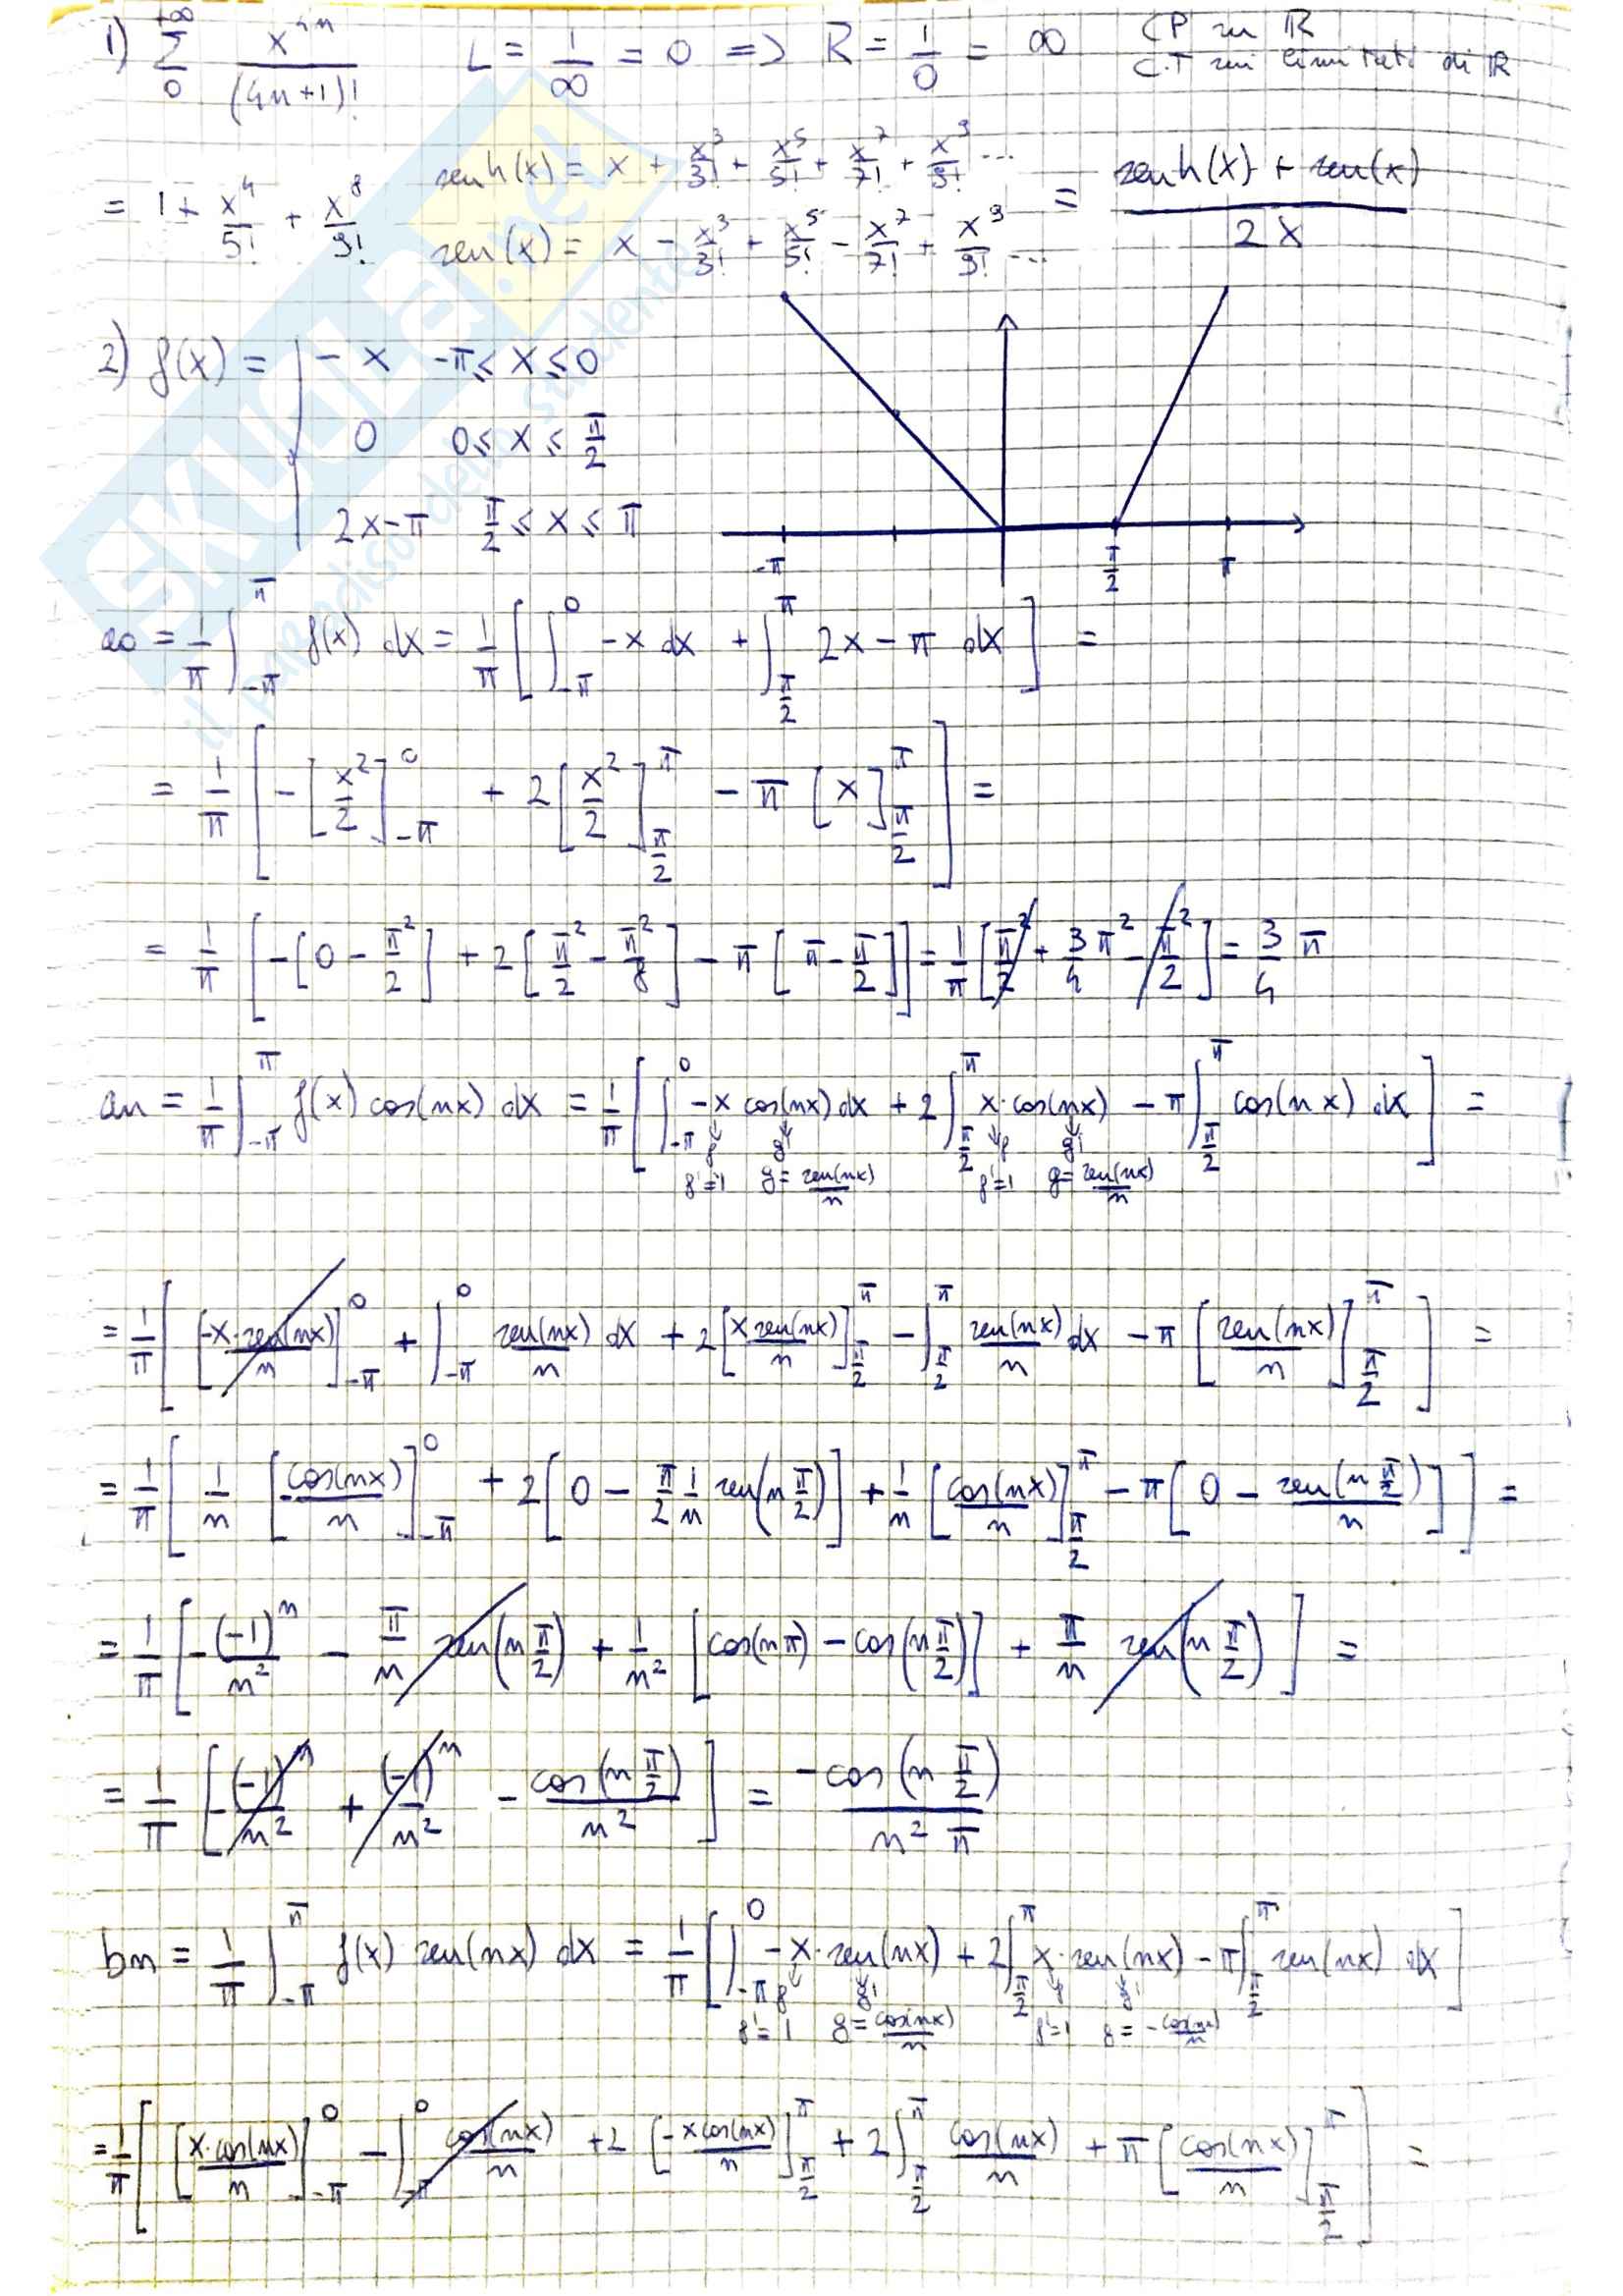 1) Σ_0^{+∞} x^{4n}/(4n+1)!   L = 1/∞ = 0 => R = 1/0 = ∞   CP su ℝ
C.T sui limitati di ℝ
= 1 + x^4/5! + x^8/9!   senh(x) = x + x^3/3! + x^5/5! + x^7/7! + x^9/9! ...
sen(x) = x - x^3/3! + x^5/5! - x^7/7! + x^9/9! ...   = (senh(x) + sen(x))/(2x)
2) f(x) = -x   -π ≤ x ≤ 0
0   0 ≤ x ≤ π/2
2x-π   π/2 ≤ x ≤ π
-π   π/2   π
a0 = 1/π ∫_{-π}^{π} f(x) dx = 1/π [ ∫_{-π}^{0} -x dx + ∫_{π/2}^{π} 2x-π dx ] =
= 1/π [ -[x^2/2]_{-π}^{0} + 2[x^2/2]_{π/2}^{π} - π[x]_{π/2}^{π} ] =
= 1/π [ -[0 - π^2/2] + 2[π^2/2 - π^2/8] - π[π - π/2] ] = 1/π [ π^2/2 + 3/4 π^2 - π^2/2 ] = 3/4 π
an = 1/π ∫_{-π}^{π} f(x) cos(nx) dx = 1/π [ ∫_{-π}^{0} -x cos(nx) dx + 2∫_{π/2}^{π} x·cos(nx) - π∫_{π/2}^{π} cos(nx) dx ] =
f   g'   f   g'
f'=1   g=sen(nx)/n   f'=1   g=sen(nx)/n
= 1/π [ [-x·sen(nx)/n]_{-π}^{0} + ∫_{-π}^{0} sen(nx)/n dx + 2[x sen(nx)/n]_{π/2}^{π} - ∫_{π/2}^{π} sen(nx)/n dx - π[sen(nx)/n]_{π/2}^{π} ] =
= 1/π [ 1/n [-cos(nx)/n]_{-π}^{0} + 2[0 - π/2 1/n sen(n π/2)] + 1/n [cos(nx)/n]_{π/2}^{π} - π[0 - sen(n π/2)/n] ] =
= 1/π [ -(-1)^n/n^2 - π/n sen(n π/2) + 1/n^2 [cos(nπ) - cos(n π/2)] + π/n sen(n π/2) ] =
= 1/π [ -(-1)^n/n^2 + (-1)^n/n^2 - cos(n π/2)/n^2 ] = -cos(n π/2)/(n^2 π)
bn = 1/π ∫_{-π}^{π} f(x) sen(nx) dx = 1/π [ ∫_{-π}^{0} -x·sen(nx) + 2∫_{π/2}^{π} x·sen(nx) - π∫_{π/2}^{π} sen(nx) dx ]
f   g'   f   g'
f'=1   g=cos(nx)/n   f'=1   g=-cos(nx)/n
= 1/π [ [x·cos(nx)/n]_{-π}^{0} - ∫_{-π}^{0} cos(nx)/n + 2[-x cos(nx)/n]_{π/2}^{π} + 2∫_{π/2}^{π} cos(nx)/n + π[cos(nx)/n]_{π/2}^{π} ] =
SKUOLA.net
il paradiso dello studente